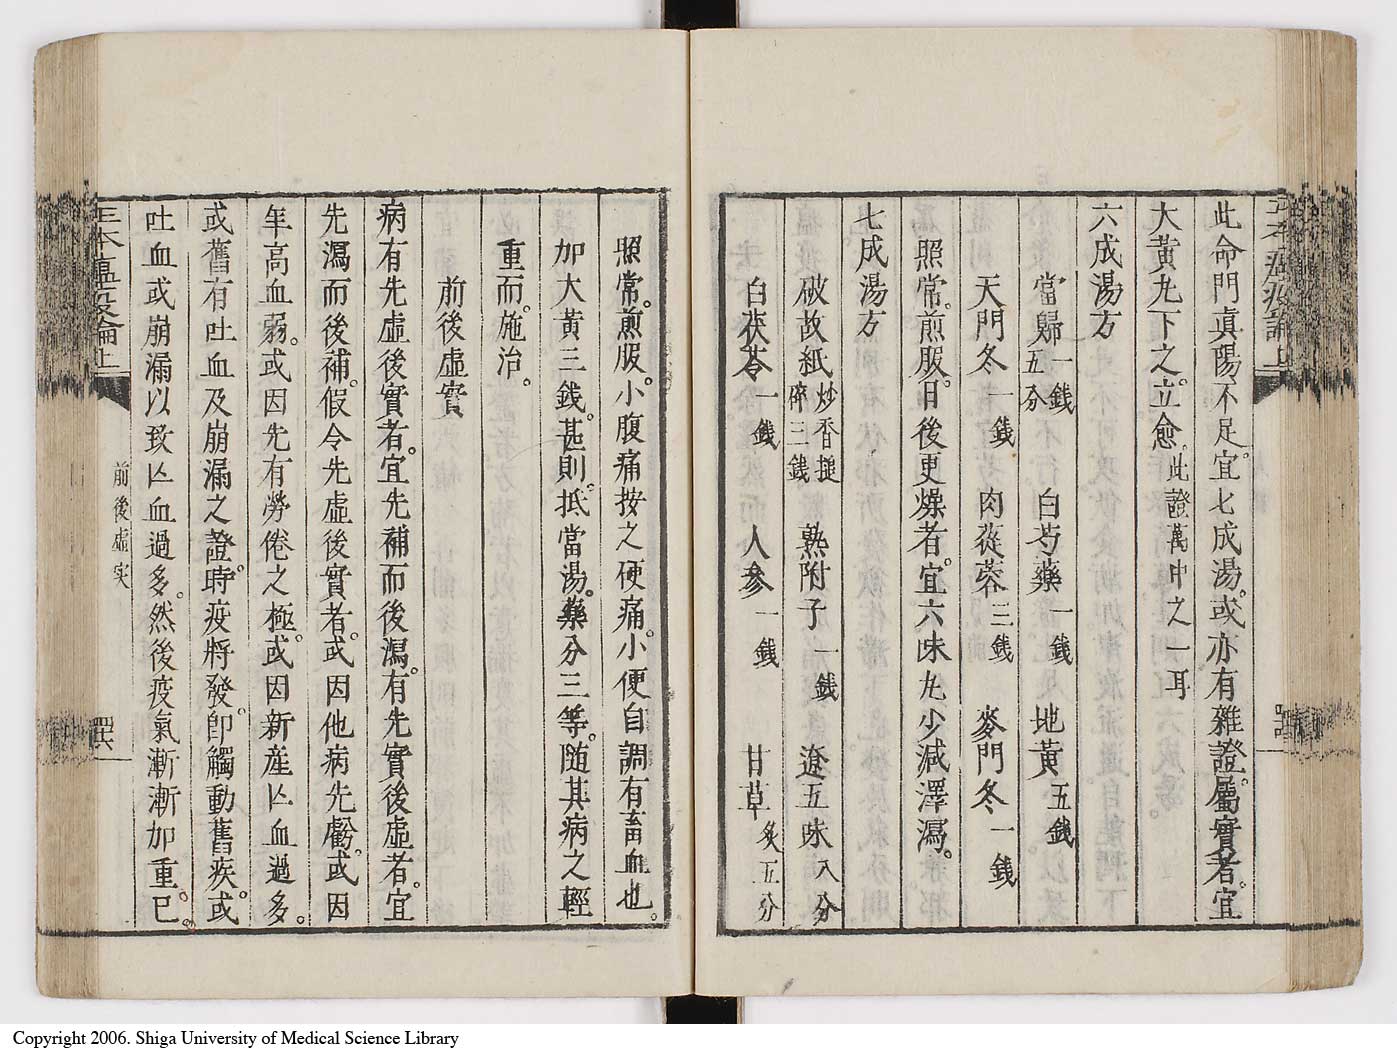 此命門真陽不足。宜七成湯。或亦有雜證。屬實者。宜
大黄丸下之。立愈。此證萬中之一耳
六成湯方
當歸一錢五分 白芍藥一錢 地黄五錢
天門冬一錢 肉蓯蓉三錢 麥門冬一錢
照常。煎服。日後更燥者。宜六味丸少減澤瀉。
七成湯方
破故紙炒香搥碎三錢 熟附子一錢 遼五味八分
白茯苓一錢 人參一錢 甘草炙五分
照常。煎服。小腹痛按之硬痛。小便自調有畜血也。
加大黄三錢。甚則。抵當湯。藥分三等。随其病之輕
重而。施治。
前後虛實
病有先虛後實者。宜先補而後瀉。有先實後虛者。宜
先瀉而後補。假令先虛後實者。或因他病先虧。或因
年高血弱。或因先有勞倦之極。或因新産亾血過多。
或舊有吐血及崩漏之證。時疫將發。卽觸動舊疾。或
吐血或崩漏以致亾血過多。然後疫氣漸漸加重。已。
瘟疫論上
前後虛实
Copyright 2006. Shiga University of Medical Science Library